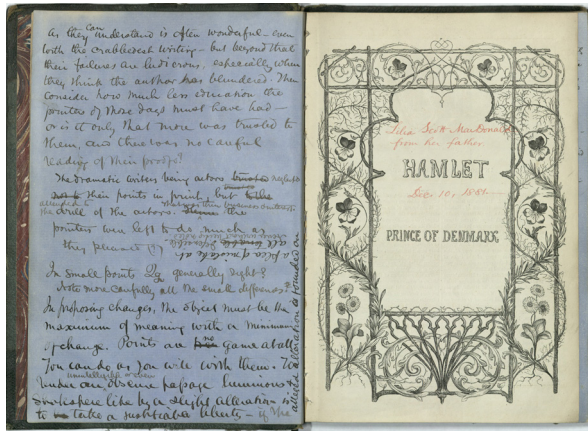 as they can understand is often wonderful — even
with the crabbedest writing — but beyond that
their failures are ludicrous, especially when
they think the author has blundered. Then
consider how much less education the
printers of those days must have had —
or is it only that more was trusted to
them, and there was no careful
reading of their proofs?
The dramatic writers being actors neglected
their points in print, but
attended to
the drill of the actors. the
printers were left to do much as
they pleased
In small points Qq generally right?
Note more carefully all the small differences?
In proposing changes, the object must be the
maximum of meaning with a minimum
of change. Points are no game at all
You can do as you will with them. To
unintelligible or even
render an obscure passage luminous
Shakspere like by a slight alteration is
to take a justifiable liberty — if the
alteration is founded on
Lilia Scott MacDonald
from her father
HAMLET
Dec. 10, 1881
PRINCE OF DENMARK